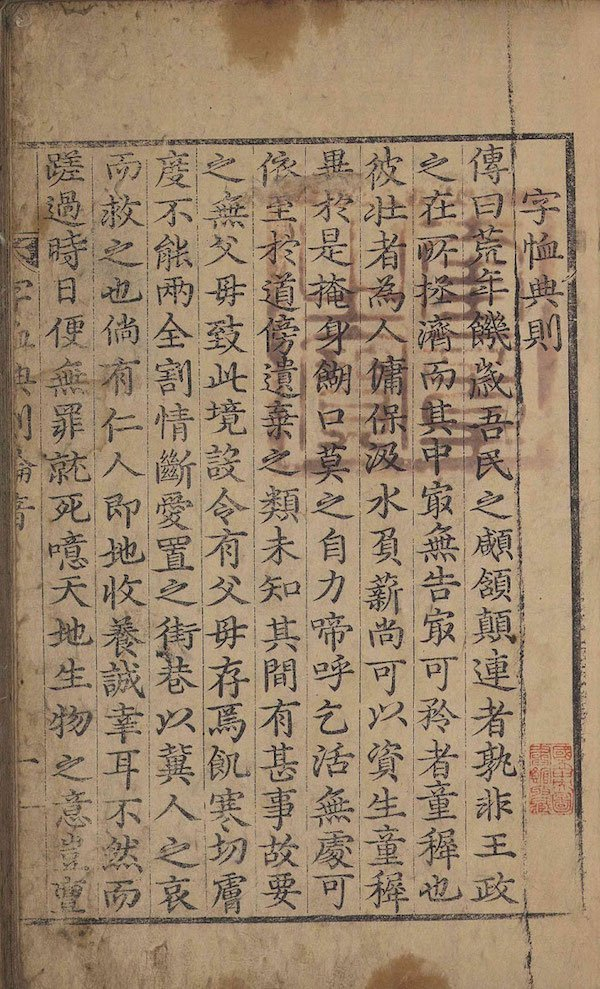 字恤典則
傳曰荒年饑歲吾民之顑頷顛連者孰非王政
之在所拯濟而其中㝡無告㝡可矜者童穉也
彼壯者為人傭保汲水負薪尚可以資生童穉
異於是掩身餬口莫之自力啼呼乞活無處可
依至於道傍遺棄之類未知其間有甚事故要
之無父毋致此境設令有父毋存焉飢寒切膚
度不能兩全割情斷愛置之街巷以冀人之哀
而救之也倘有仁人即地收養誠幸耳不然而
蹉過時日便無罪就死噫天地生物之意豈亶
字恤典則綸音
一